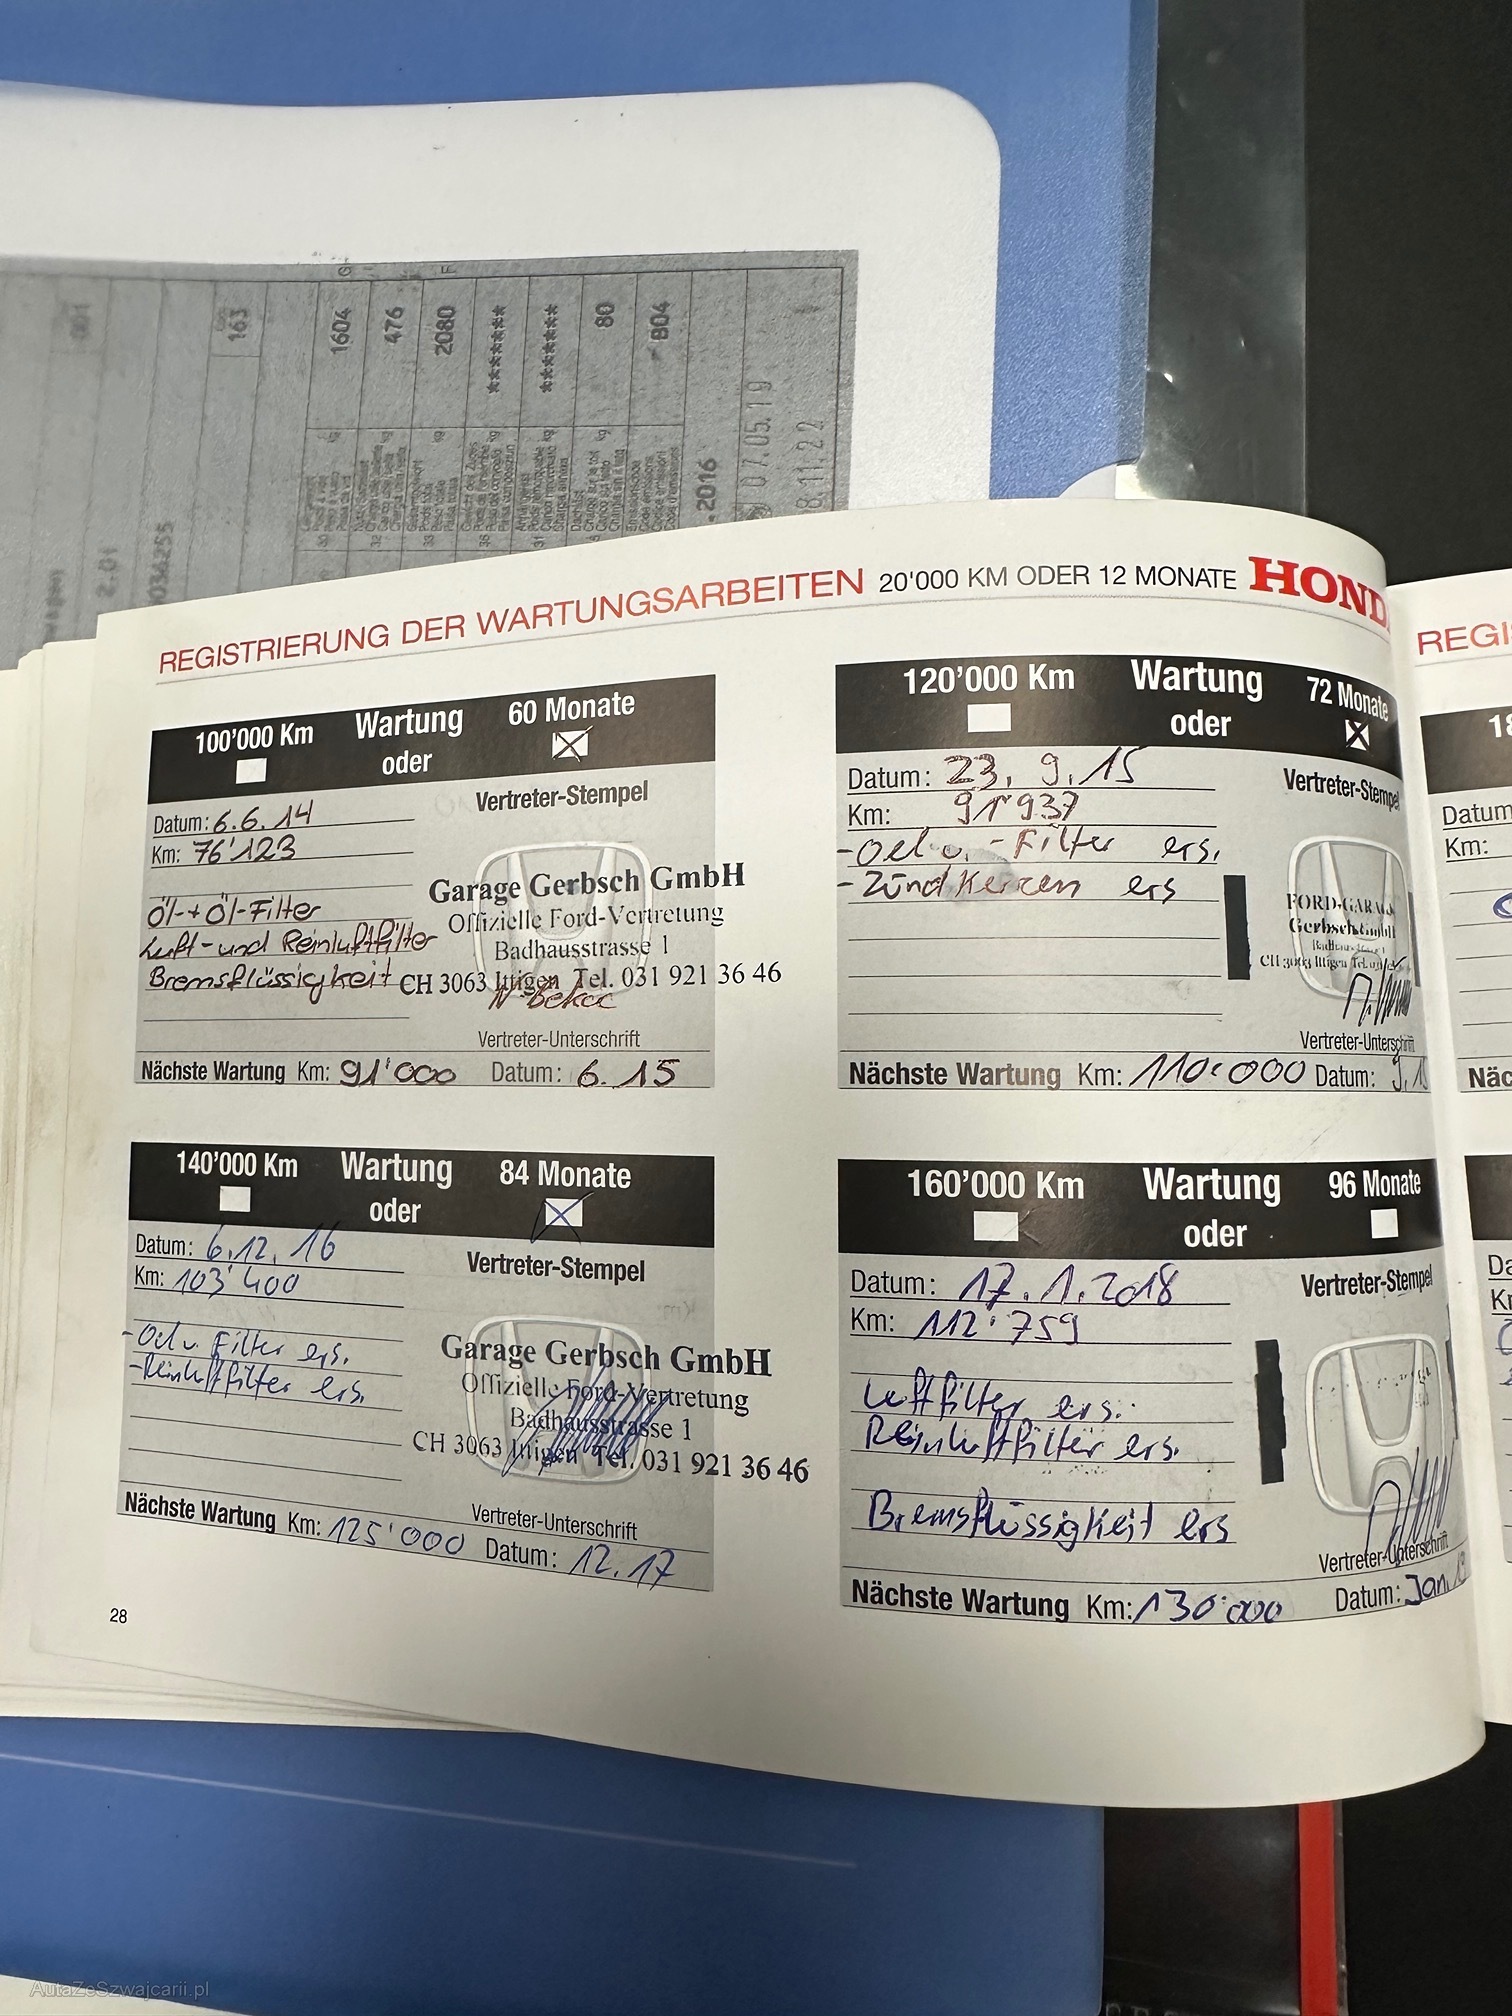 001
163
1604
476
2080
*******
*******
80
B04
.2016
07.05.19
8.11.22
2.01
0034255
REGISTRIERUNG DER WARTUNGSARBEITEN 20'000 KM ODER 12 MONATE HONDA
100'000 Km Wartung oder 60 Monate
Datum: 6.6.14
Km: 76'123
Vertreter-Stempel
Öl-+Öl-Filter
Luft-und Reinluftfilter
Bremsflüssigkeit
Garage Gerbsch GmbH
Offizielle Ford-Vertretung
Badhausstrasse 1
CH 3063 Ittigen Tel. 031 921 36 46
Vertreter-Unterschrift
Nächste Wartung Km: 91'000 Datum: 6.15
120'000 Km Wartung oder 72 Monate
Datum: 23.9.15
Km: 91'937
Vertreter-Stempel
-Oel u. -Filter ers.
-Zündkerzen ers
FORD-GARAGE
Gerbsch GmbH
CH 3063 Ittigen
Vertreter-Unterschrift
Nächste Wartung Km: 110'000 Datum:
140'000 Km Wartung oder 84 Monate
Datum: 6.12.16
Km: 103'400
Vertreter-Stempel
-Oel u. Filter ers.
-Reinluftfilter ers.
Garage Gerbsch GmbH
Offizielle Ford-Vertretung
Badhausstrasse 1
CH 3063 Ittigen Tel. 031 921 36 46
Vertreter-Unterschrift
Nächste Wartung Km: 125'000 Datum: 12.17
160'000 Km Wartung oder 96 Monate
Datum: 17.1.2018
Km: 112'759
Vertreter-Stempel
Luftfilter ers.
Reinluftfilter ers.
Bremsflüssigkeit ers
Vertreter-Unterschrift
Nächste Wartung Km: 130'000 Datum: Jan.
28
REGIS
18
Datum
Km:
AutaZeSzwajcarii.pl